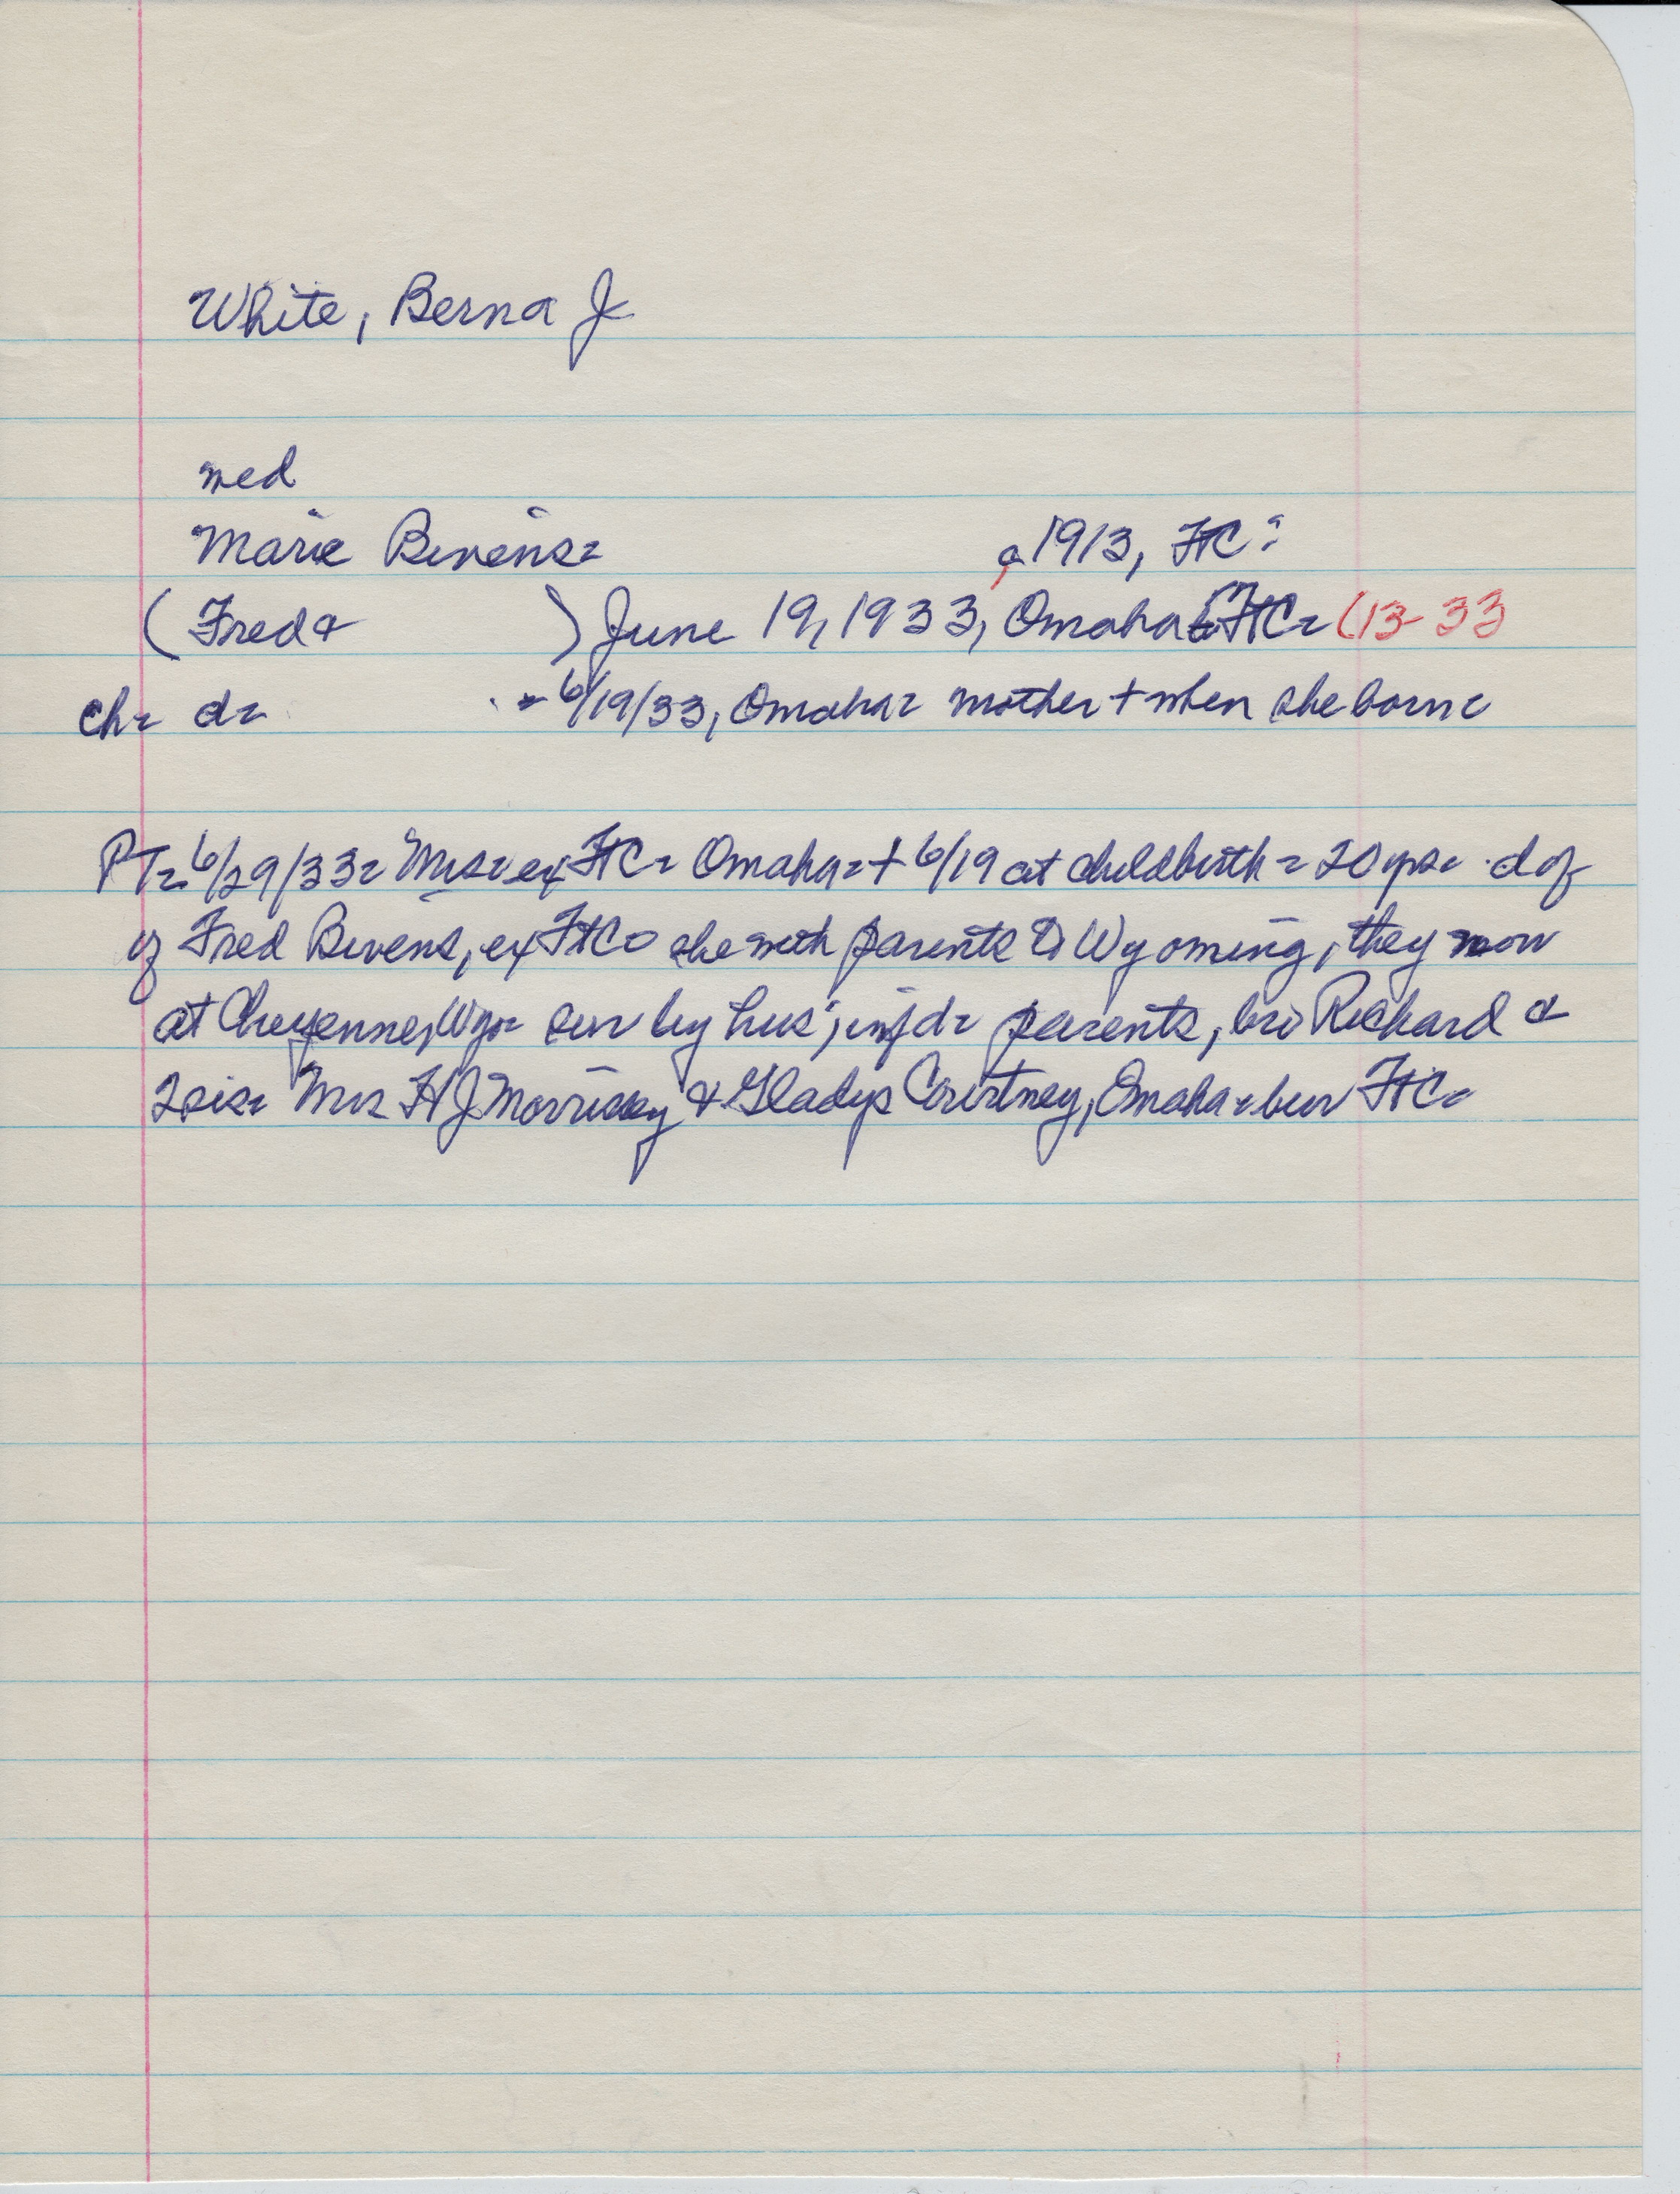 White, Berna J
wed
Marie Bivens= a 1913, FtC=
(Fred & ) June 19, 1933, Omaha FtC= (13-33
ch= d= = 6/19/33, Omaha= mother + when she born=
PT= 6/29/33= Mrs= ex FtC= Omaha= + 6/19 at childbirth = 20 yrs= d of
of Fred Bivens, ex FtC= she with parents to Wyoming, they now
at Cheyenne, Wyo= sur by hus', inf d= parents, bro Richard &
2 sis= Mrs H J Morrissey & Gladys Courtney, Omaha= bur FtC=